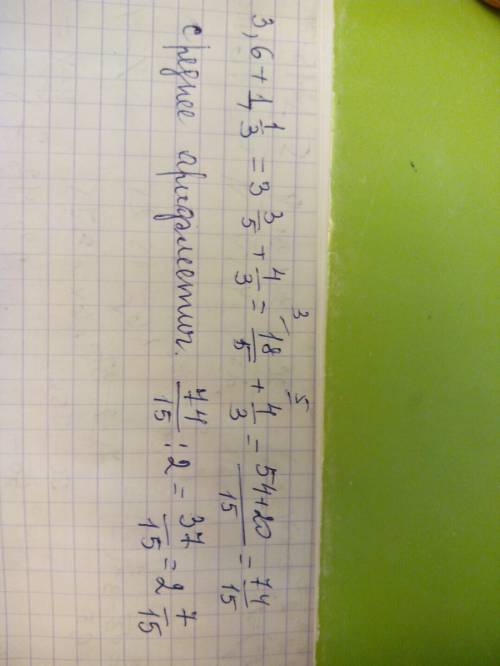 3,6 + 1 1/3 = 3 3/5 + 4/3 = 18/5 (3 + 4/3 (5 = 54+20/15 = 74/15
среднее арифметич. 74/15 : 2 = 37/15 = 2 7/15